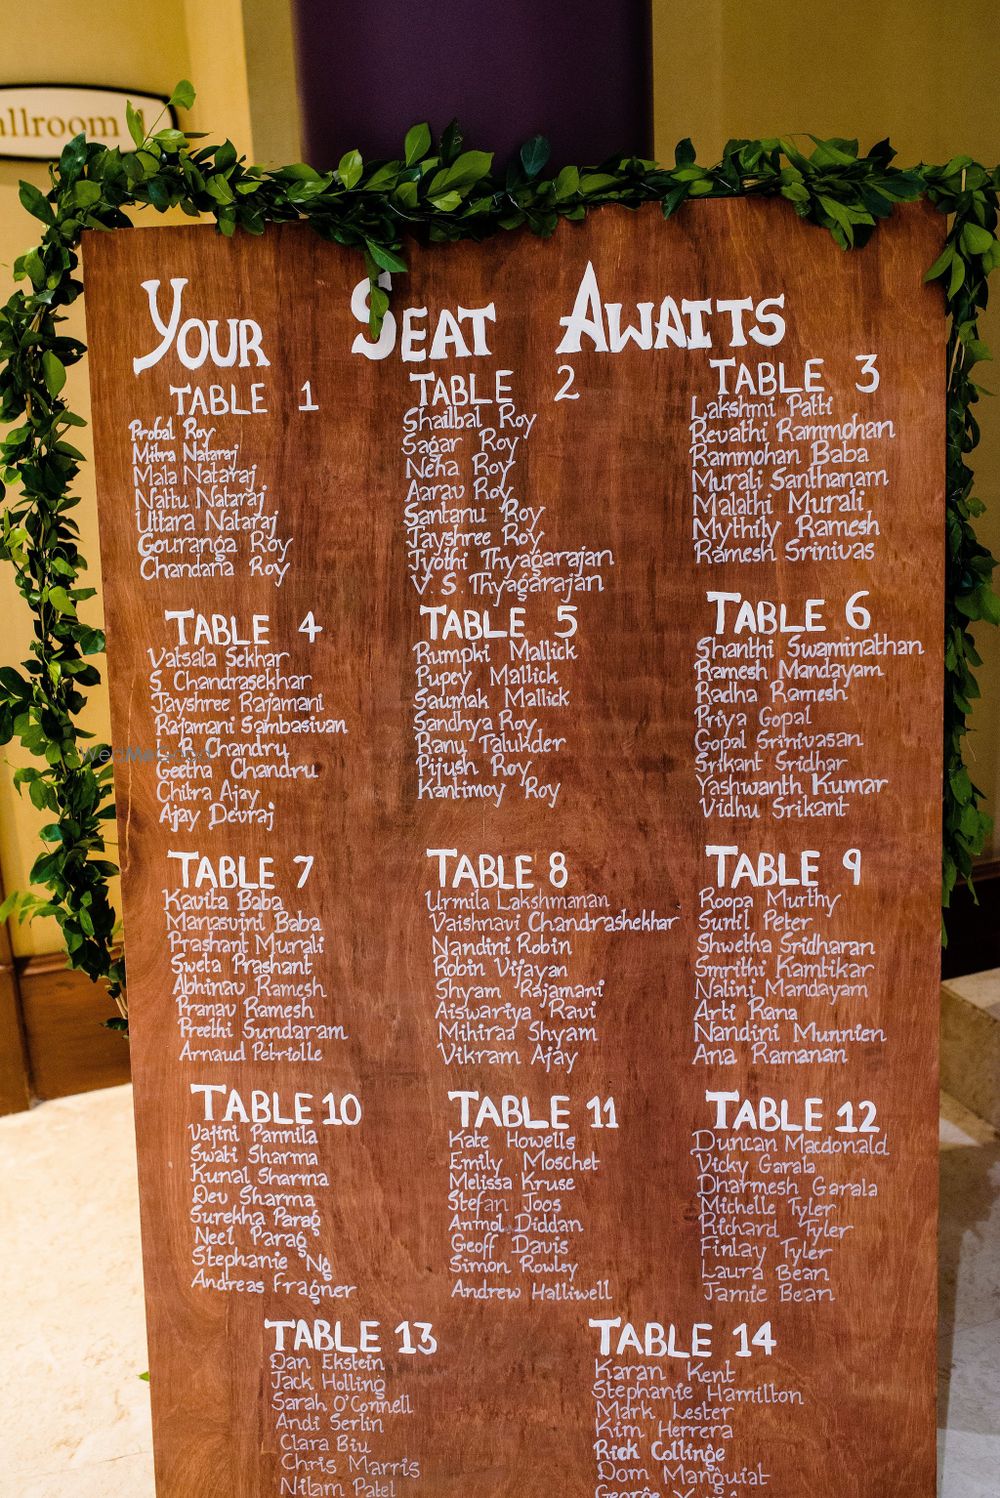 allroom 1
YOUR SEAT AWAITS
TABLE 1
Probal Roy
Mitra Nataraj
Mala Nataraj
Nattu Nataraj
Uttara Nataraj
Gouranga Roy
Chandana Roy
TABLE 2
Shailbal Roy
Sagar Roy
Neha Roy
Aarav Roy
Santanu Roy
Jayshree Roy
Jyothi Thyagarajan
V. S. Thyagarajan
TABLE 3
Lakshmi Patti
Revathi Rammohan
Rammohan Baba
Murali Santhanam
Malathi Murali
Mythily Ramesh
Ramesh Srinivas
TABLE 4
Vatsala Sekhar
S Chandrasekhar
Jayshree Rajamani
Rajamani Sambasivan
R Chandru
Geetha Chandru
Chitra Ajay
Ajay Devraj
TABLE 5
Rumpki Mallick
Pupey Mallick
Saumak Mallick
Sandhya Roy
Ranu Talukder
Pijush Roy
Kantimoy Roy
TABLE 6
Shanthi Swaminathan
Ramesh Mandayam
Radha Ramesh
Priya Gopal
Gopal Srinivasan
Srikant Sridhar
Yashwanth Kumar
Vidhu Srikant
TABLE 7
Kavita Baba
Manasvini Baba
Prashant Murali
Sweta Prashant
Abhinav Ramesh
Pranav Ramesh
Preethi Sundaram
Arnaud Petriolle
TABLE 8
Urmila Lakshmanan
Vaishnavi Chandrashekhar
Nandini Robin
Robin Vijayan
Shyam Rajamani
Aiswariya Ravi
Mihiraa Shyam
Vikram Ajay
TABLE 9
Roopa Murthy
Sunil Peter
Shwetha Sridharan
Smrithi Kamtikar
Nalini Mandayam
Arti Rana
Nandini Munnien
Ana Ramanan
TABLE 10
Vajini Pannila
Swati Sharma
Kunal Sharma
Dev Sharma
Surekha Parag
Neel Parag
Stephanie Ng
Andreas Fragner
TABLE 11
Kate Howells
Emily Moschet
Melissa Kruse
Stefan Joos
Anmol Diddan
Geoff Davis
Simon Rowley
Andrew Halliwell
TABLE 12
Duncan Macdonald
Vicky Garala
Dharmesh Garala
Michelle Tyler
Richard Tyler
Finlay Tyler
Laura Bean
Jamie Bean
TABLE 13
Dan Ekstein
Jack Holling
Sarah O'Connell
Andi Serlin
Clara Biu
Chris Marris
Nilam Patel
TABLE 14
Karan Kent
Stephanie Hamilton
Mark Lester
Kim Herrera
Rick Collinge
Dom Manguiat